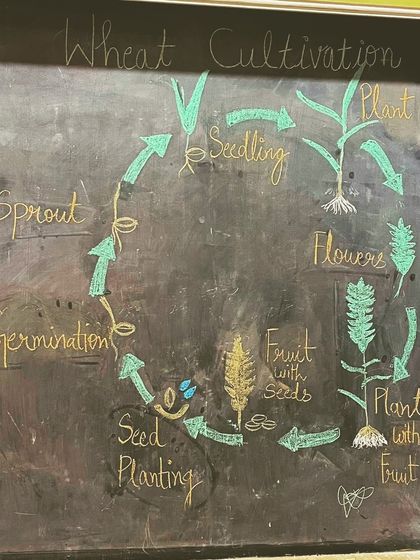 Wheat Cultivation
Plant
Seedling
Sprout
Flowers
germination
Fruit
with
Seeds
Plant
with
Fruit
Seed
Planting